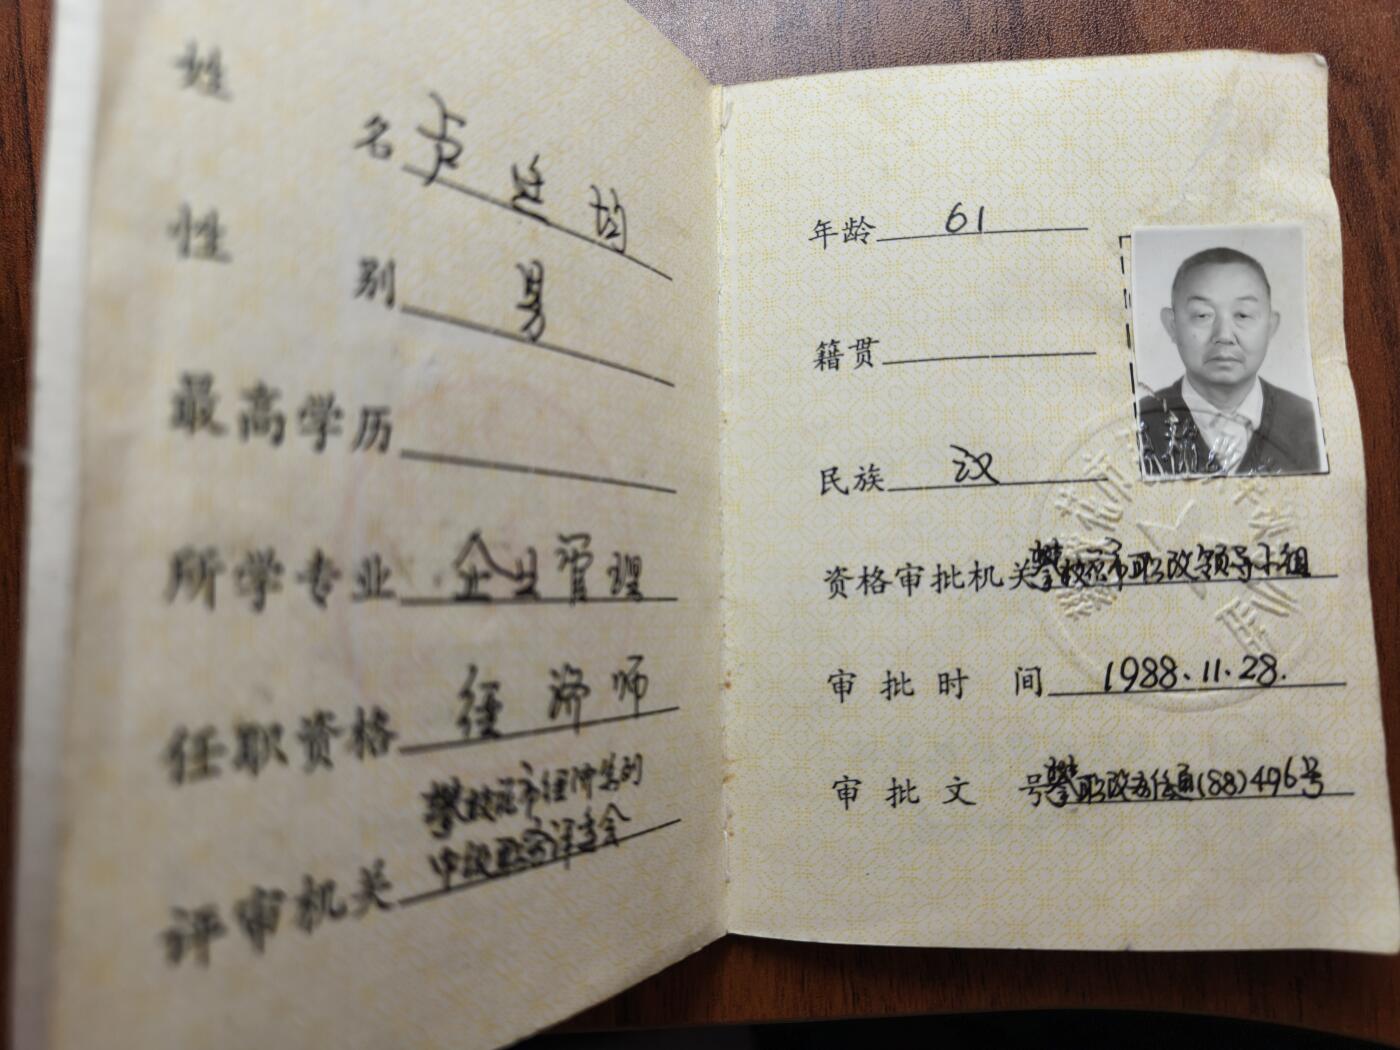 姓名 卢廷均
性别 男
最高学历
所学专业 企业管理
任职资格 经济师
评审机关 攀枝花市经济系列
中级职务评委会
年龄 61
籍贯
民族 汉
资格审批机关 攀枝花市职改领导小组
审批时间 1988.11.28.
审批文号 攀职改办任通(88)496号